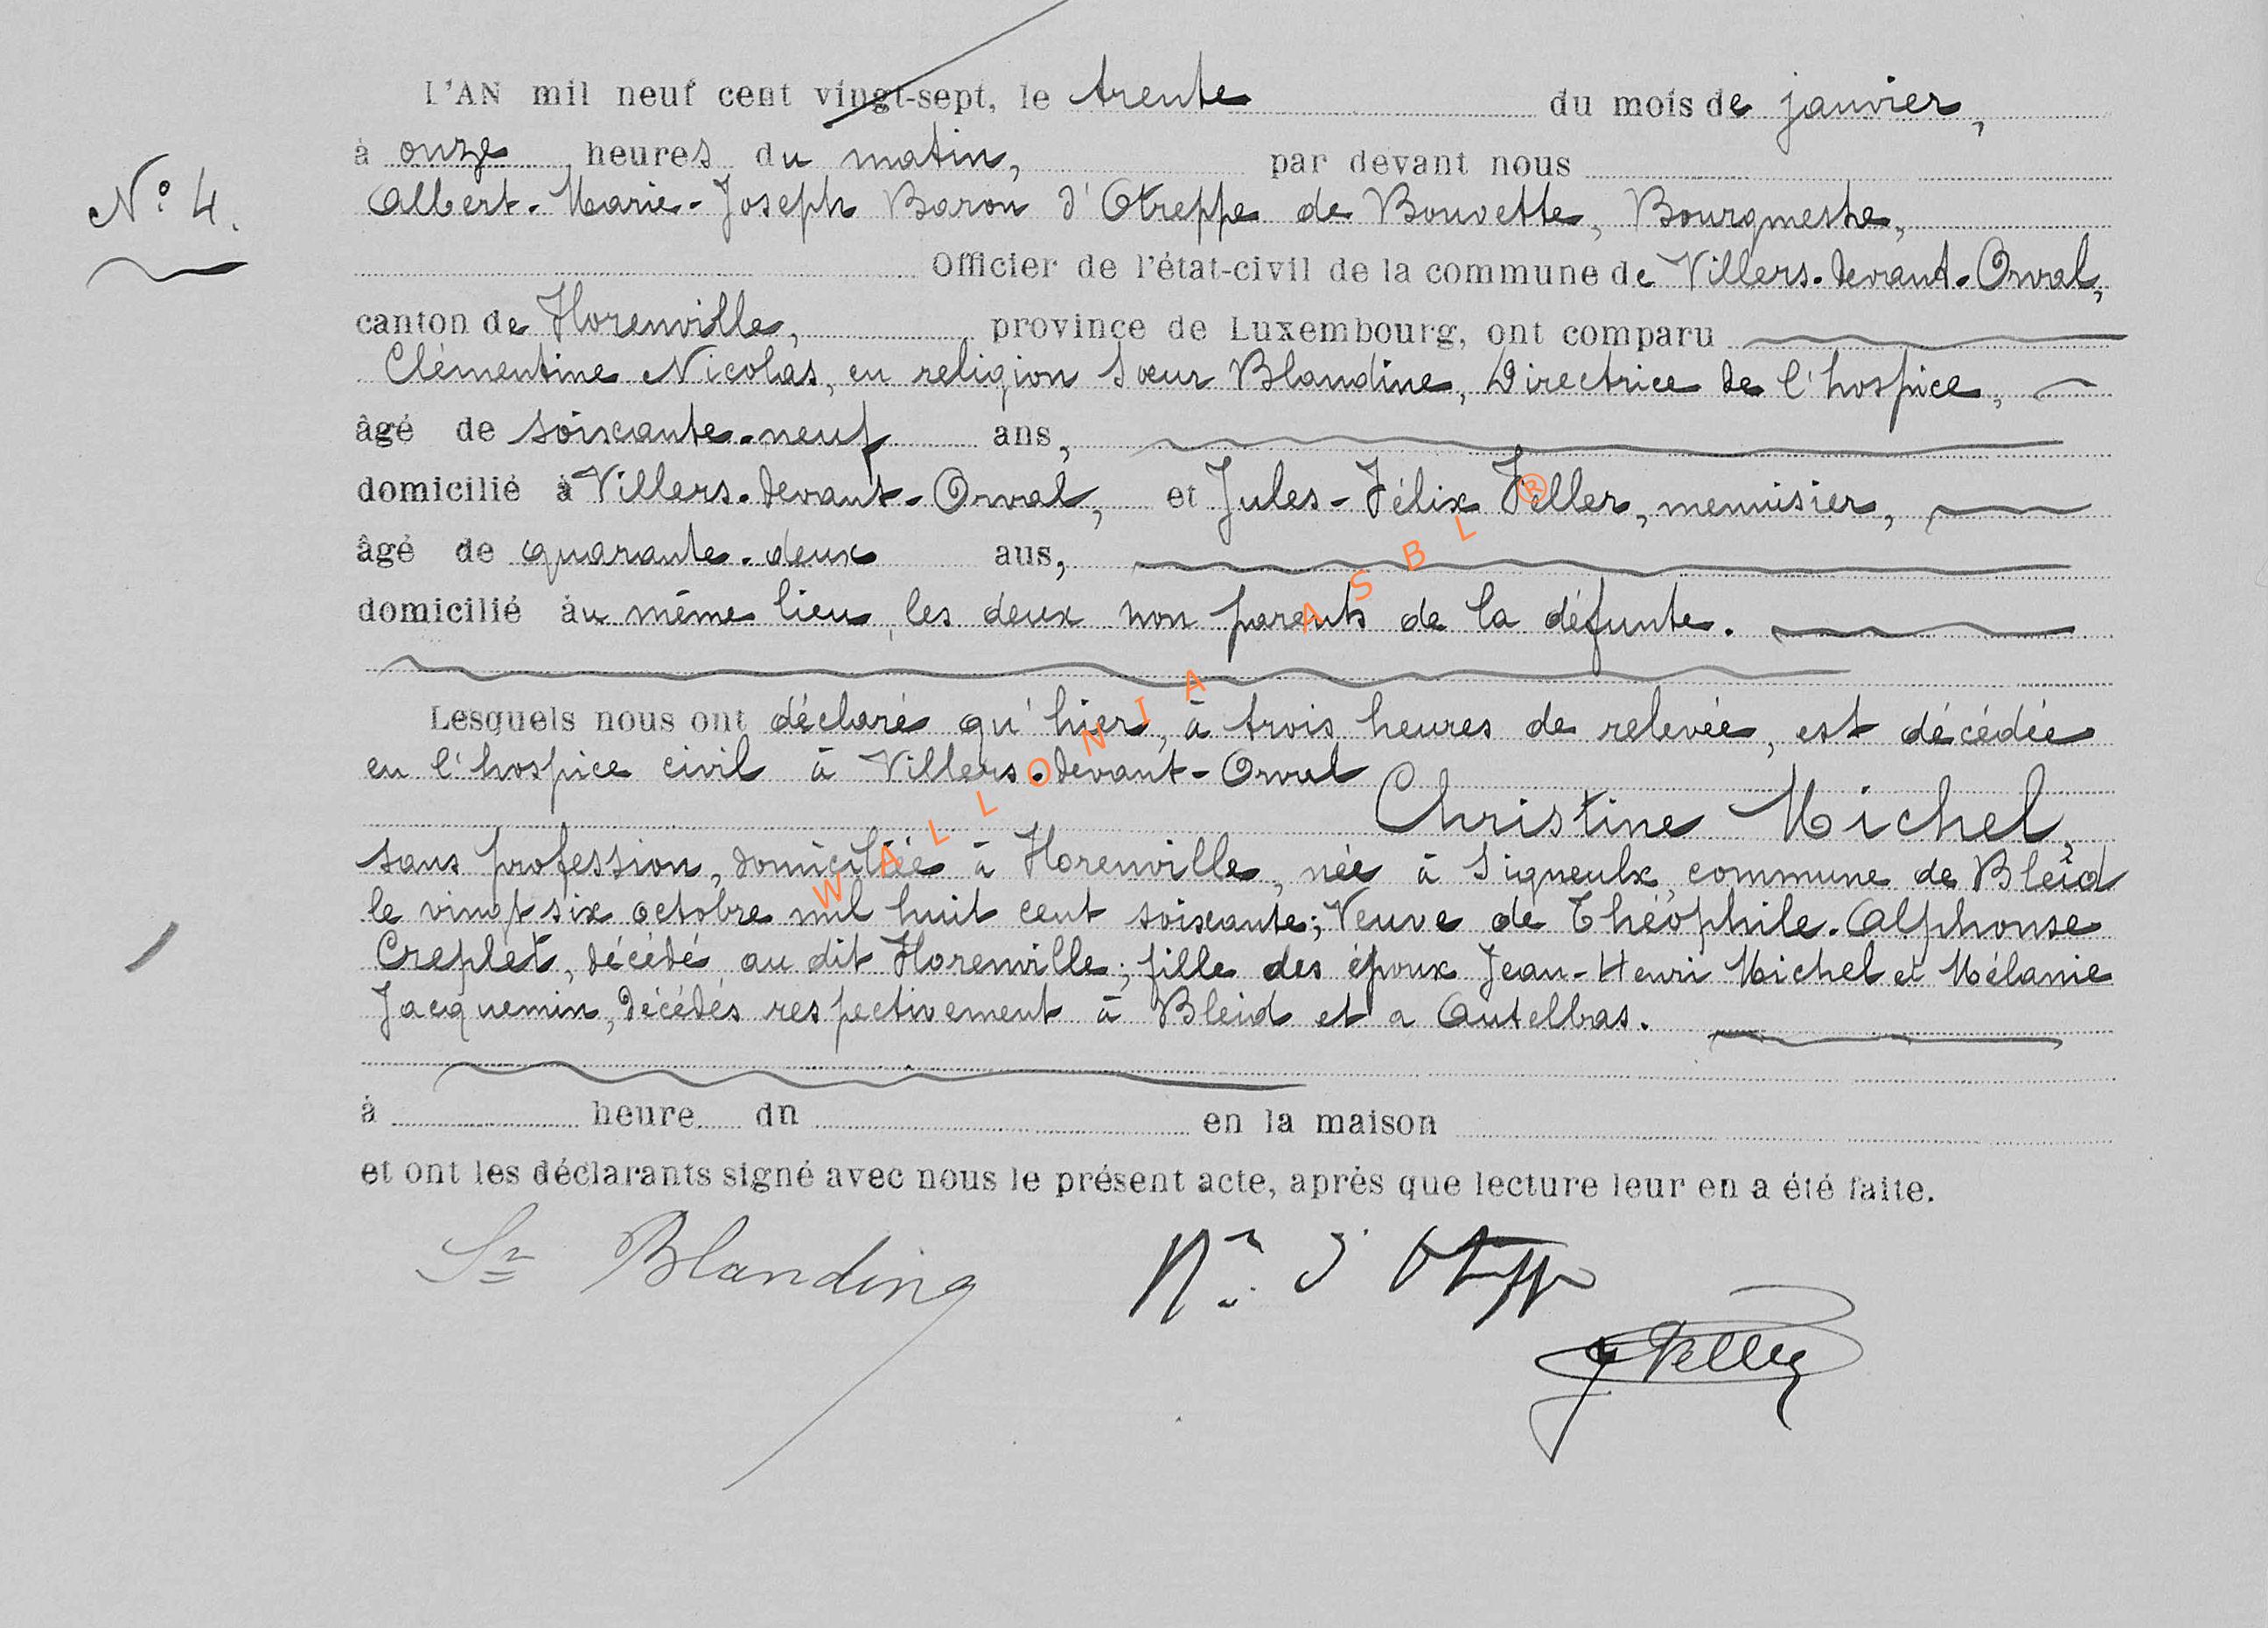 L'AN mil neuf cent vingt-sept, le trente du mois de janvier,
à onze heures du matin, par devant nous
N° 4.
Albert-Marie-Joseph Baron d'Otreppe de Bouvette, Bourgmestre,
Officier de l'état-civil de la commune de Villers-devant-Orval,
canton de Florenville, province de Luxembourg, ont comparu
Clémentine Nicolas, en religion Sœur Blandine, Directrice de l'hospice,
âgé de soixante-neuf ans,
domicilié à Villers-devant-Orval, et Jules-Félix Feller, menuisier,
âgé de quarante-deux aus,
domicilié au même lieu, les deux non parents de la défunte.
Lesquels nous ont déclaré qu'hier, à trois heures de relevée, est décédée
en l'hospice civil à Villers-devant-Orval
Christine Michel,
sans profession, domiciliée à Florenville, née à Signeulx, commune de Bleid
le vingt six octobre mil huit cent soixante; Veuve de Théophile-Alphonse
Creplet, décédé au dit Florenville; fille des époux Jean-Henri Michel et Mélanie
Jacquemin, décédés respectivement à Bleid et a Autelbas.
à heure dn en la maison
et ont les déclarants signé avec nous le présent acte, après que lecture leur en a été faite.
Sr Blandine
d'Otreppe
J Feller
WALLONIA ASBL ®